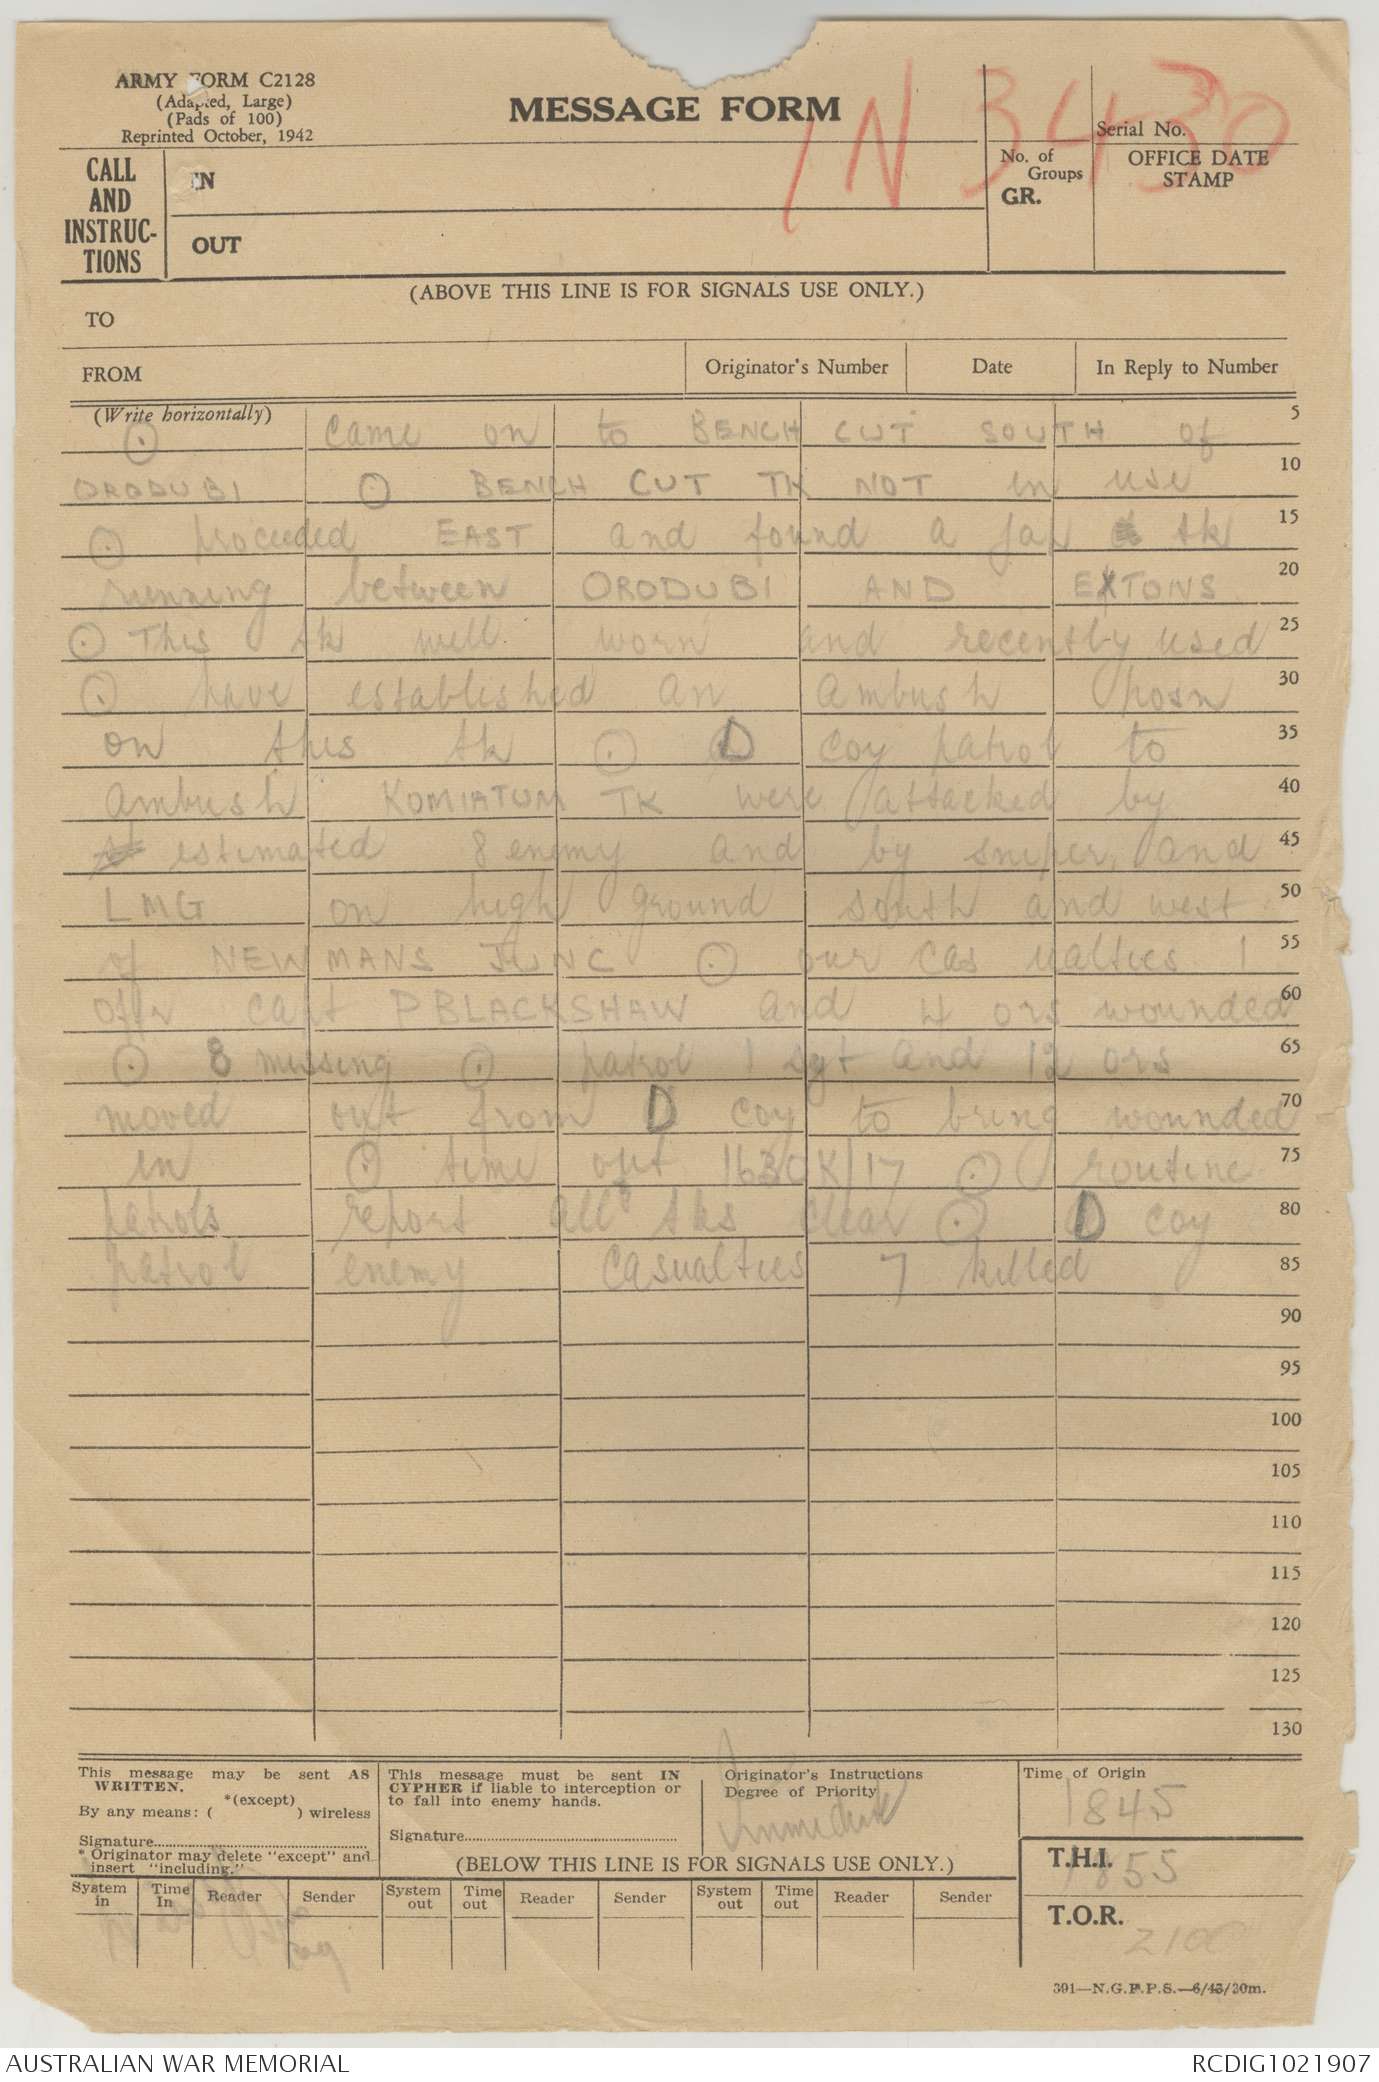 ARMY FORM C2128
(Adapted, Large)
(Pads of 100)
Reprinted October, 1942
MESSAGE FORM
IN 3430
Serial No.
No. of Groups
GR.
OFFICE DATE STAMP
CALL AND INSTRUC-TIONS
IN
OUT
(ABOVE THIS LINE IS FOR SIGNALS USE ONLY.)
TO
FROM
Originator's Number
Date
In Reply to Number
(Write horizontally)
⊙ came on to BENCH CUT SOUTH of 5
ORODUBI ⊙ BENCH CUT TK NOT in use 10
⊙ proceeded EAST and found a jap tk 15
running between ORODUBI AND EXTONS 20
⊙ This tk well worn and recently used 25
⊙ have established an ambush posn 30
on this tk ⊙ D coy patrol to 35
ambush KOMIATUM TK were attacked by 40
estimated 8 enemy and by sniper, and 45
LMG on high ground south and west 50
of NEWMANS JUNC ⊙ our casualties 1 55
offr capt P BLACKSHAW and 4 ors wounded 60
⊙ 8 missing ⊙ patrol 1 sgt and 12 ors 65
moved out from D coy to bring wounded 70
in ⊙ time opt 1630K/17 ⊙ routine 75
patrols report all tks clear ⊙ D coy 80
patrol enemy casualties 7 killed 85
90
95
100
105
110
115
120
125
130
This message may be sent AS WRITTEN.
*(except)
By any means: ( ) wireless
Signature
* Originator may delete "except" and insert "including."
This message must be sent IN CYPHER if liable to interception or to fall into enemy hands.
Signature
Originator's Instructions
Degree of Priority
Immediate
Time of Origin
1845
T.H.I.
1855
T.O.R.
2100
(BELOW THIS LINE IS FOR SIGNALS USE ONLY.)
System in
Time In
Reader
Sender
System out
Time out
Reader
Sender
System out
Time out
Reader
Sender
391—N.G.F.P.S.—6/43/20m.
AUSTRALIAN WAR MEMORIAL
RCDIG1021907